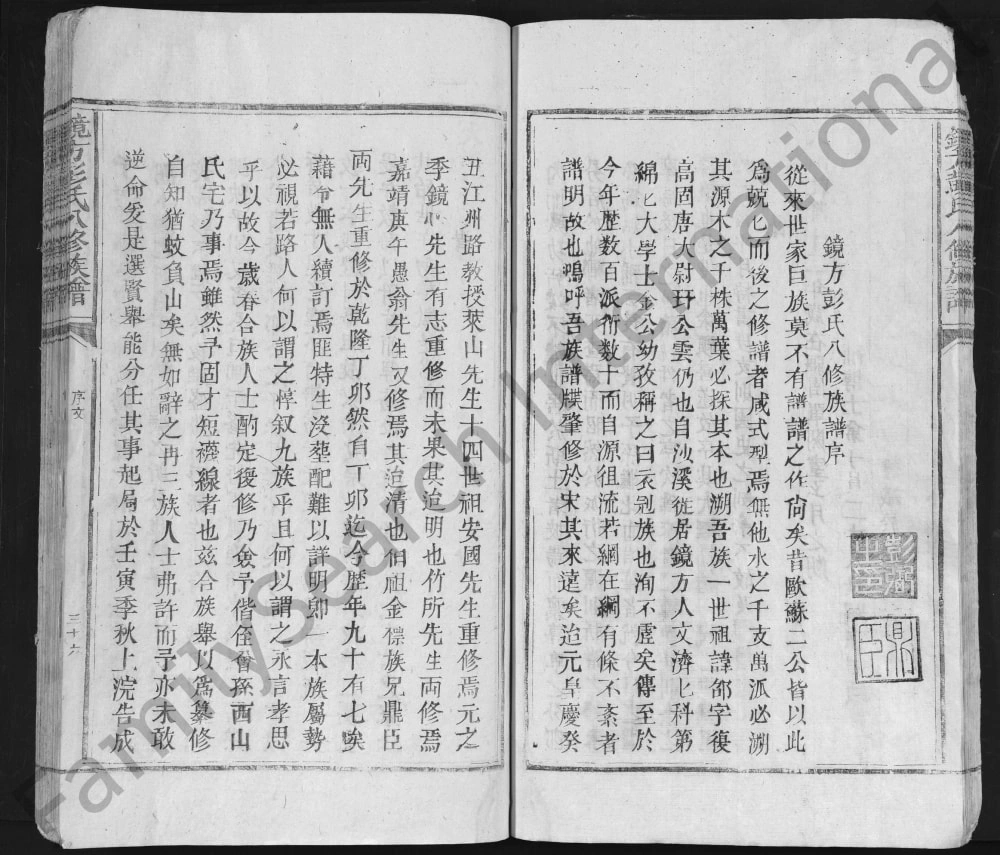 鏡方彭氏八修族譜序
從來世家巨族莫不有譜譜之作尙矣昔歐蘇二公皆以此
爲兢匕而後之修譜者咸式型焉無他水之千支萬派必溯
其源木之千株萬葉必探其本也溯吾族一世祖諱邵字復
高固唐大尉玕公雲仍也自沙溪徙居鏡方人文濟匕科第
綿匕大學士金公幼孜稱之曰衣冠族也洵不虛矣傳至於
今年歷数百派衍数十而自源徂流若綱在綱有條不紊者
譜明故也嗚呼吾族譜牒肇修於宋其來遠矣迨元皇慶癸
丑江州路教授萊山先生十四世祖安國先生重修焉元之
季鏡心先生有志重修而未果其迨明也竹所先生両修焉
嘉靖庚午愚翁先生又修焉其迨清也伯祖金標族兄鼎臣
両先生重修於乾隆丁卯然自丁卯迄今歷年九十有七唉
藉令無人續訂焉匪特生没塟配難以詳明卽一本族屬勢
必視若路人何以謂之惇叙九族乎且何以謂之永言孝思
乎以故今歲春合族人士酌定復修乃僉予偕侄曾孫西山
氏宅乃事焉雖然予固才短襪線者也兹合族舉以爲纂修
自知猶蚊負山矣無如辭之再三族人士弗許而予亦未敢
逆命爰是選賢舉能分任其事起局於壬寅季秋上浣告成
鏡方彭氏八修族譜
序文
三十六